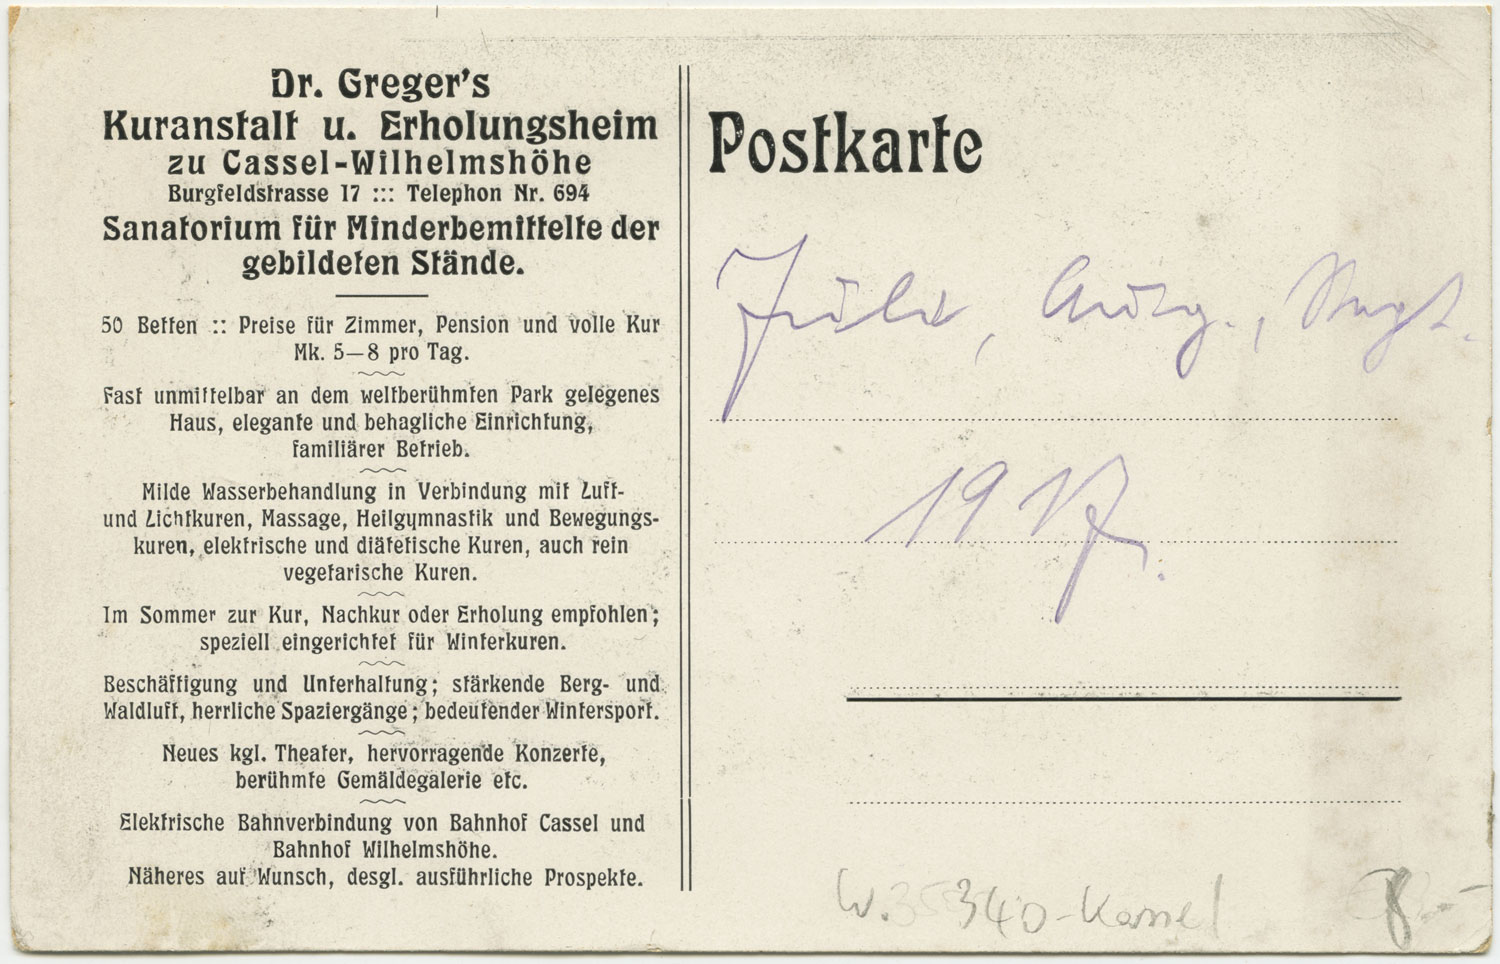 Dr. Greger's
Kuranstalt u. Erholungsheim
zu Cassel-Wilhelmshöhe
Burgfeldstrasse 17 ::: Telephon Nr. 694
Sanatorium für Minderbemittelte der
gebildeten Stände.
50 Betten :: Preise für Zimmer, Pension und volle Kur
Mk. 5—8 pro Tag.
Fast unmittelbar an dem weltberühmten Park gelegenes
Haus, elegante und behagliche Einrichtung,
familiärer Betrieb.
Milde Wasserbehandlung in Verbindung mit Luft-
und Lichtkuren, Massage, Heilgymnastik und Bewegungs-
kuren, elektrische und diätetische Kuren, auch rein
vegetarische Kuren.
Im Sommer zur Kur, Nachkur oder Erholung empfohlen;
speziell eingerichtet für Winterkuren.
Beschäftigung und Unterhaltung; stärkende Berg- und
Waldluft, herrliche Spaziergänge; bedeutender Wintersport.
Neues kgl. Theater, hervorragende Konzerte,
berühmte Gemäldegalerie etc.
Elektrische Bahnverbindung von Bahnhof Cassel und
Bahnhof Wilhelmshöhe.
Näheres auf Wunsch, desgl. ausführliche Prospekte.
Postkarte
1917.
W. 340-Kassel
8.-